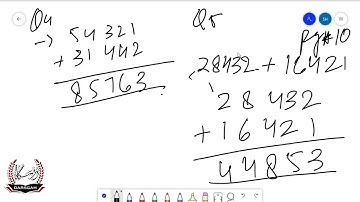 Q4
-> 54 321
+ 31 442
85763
Q5
pg#10
28432 + 16421
1
28 432
+ 16 421
44853
DARSGAH